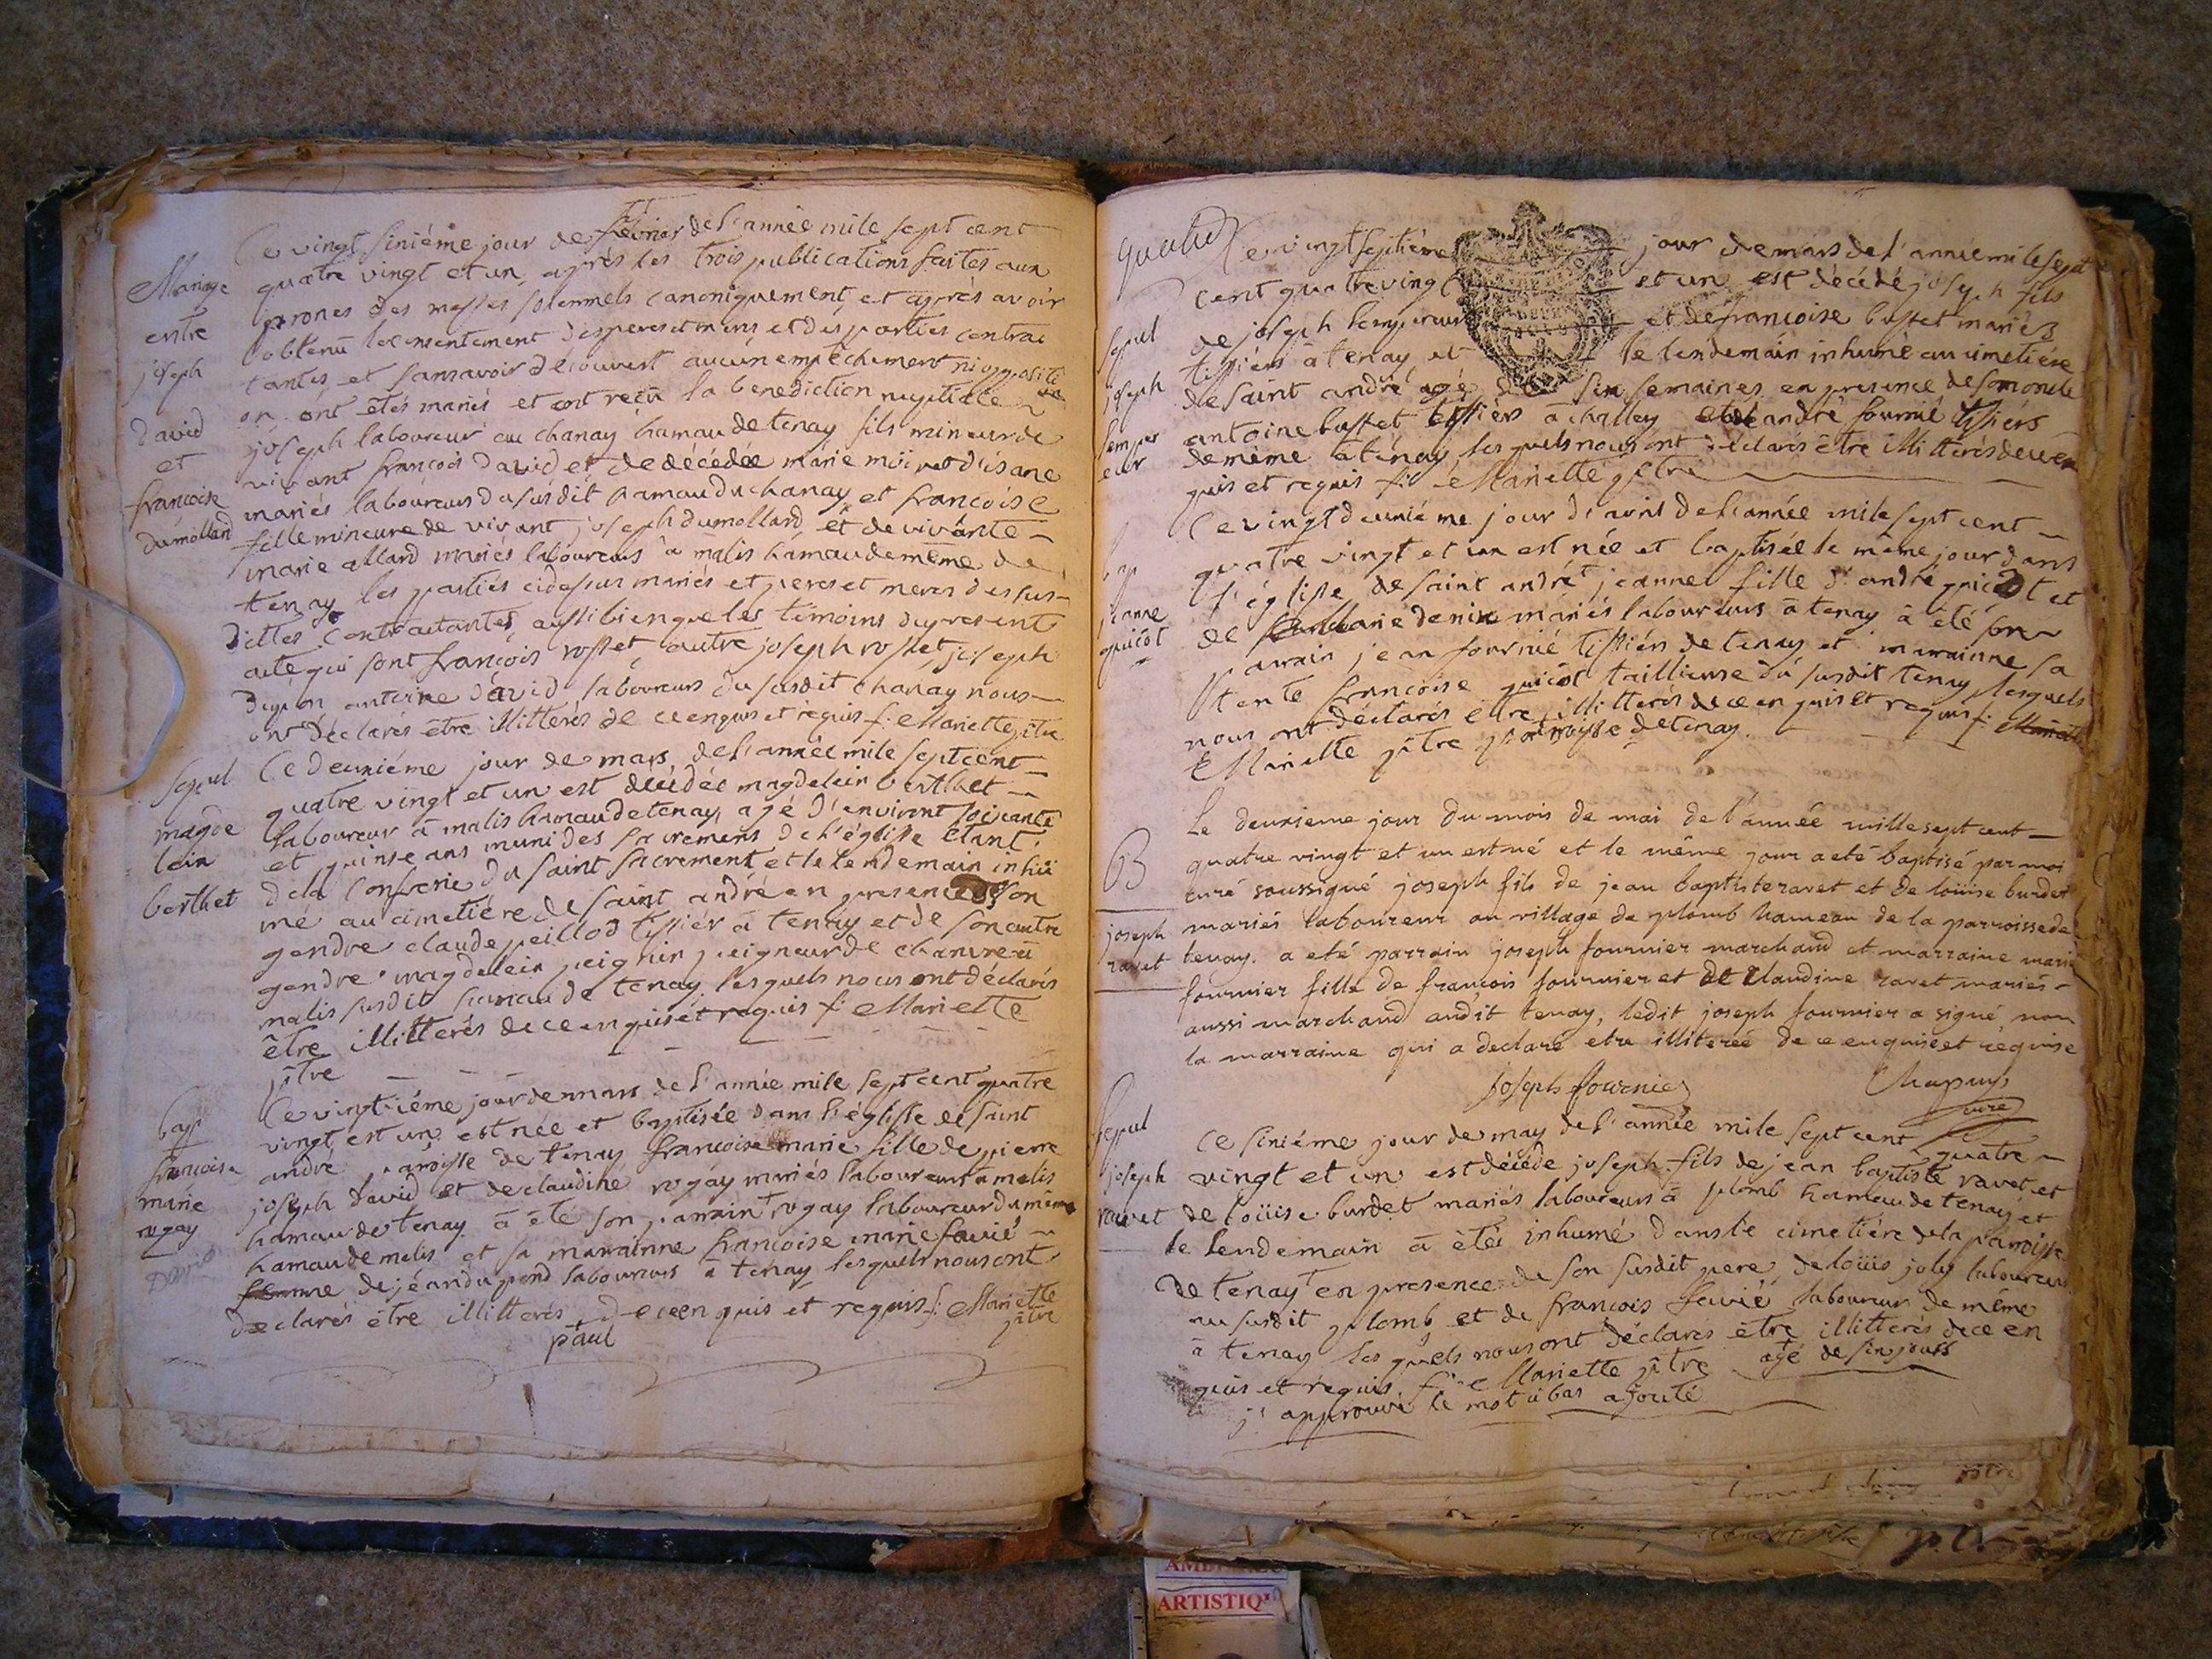 Mariage
entre
joseph
david
et
françoise
dumollard
Ce vingt siniéme jour de février de l'année mile sept cent
quatre vingt et un, après les trois publications faites aux
prones des messes solennels canoniquement, et après avoir
obtenu le consentement des peres et meres et des parties contrac
tantes, et sans avoir découvert aucun empêchement ni oppositi
on ont étés mariés et ont reçû la benediction nuptiale
joseph laboureur au chanay hamau de tenay fils mineur de
vivant françois david et de décédée marie
mariés laboureurs du susdit hamau du chanay et françoise
fille mineure de vivant joseph dumollard et de vivante
marie allard mariés laboureurs à malis hamau de même de
tenay les parties cidessus mariés et peres et meres des sus
dittes contractantes, aussi bien que les témoins du present
acte qui sont françois rosset, autre joseph rosset, joseph
antoine david laboureurs du susdit chanay nous
ont déclarés être illitterés de ce enquis et requis f. Mariette ptre
sepul
magde
lein
berthet
Ce deuniéme jour de mars de l'année mile sept cent
quatre vingt et un est décédée magdelein berthet
laboureur à malis hamau de tenay, agé d'environt soixante
et quinse ans muni des sacremens de l'églisse étant
de la confrerie du saint sacrement et le lendemain inhu
me au cimetiére de saint andré en presence de son
gendre claude peillod tissier à tenay et de son autre
gendre magdelein peignin peigneur de chanvre à
malis susdit hamau de tenay lesquels nous ont déclarés
être illitterés de ce enquis et requis f. Mariette
ptre
bap
françoise
marie
rogay
David
Ce vingtiéme jour de mars de l'année mile sept cent quatre
vingt est un est née et baptisée dans l'églisse de saint
andré paroisse de tenay françoise marie fille de pierre
joseph david et de claudine rogay mariés laboureurs à malis
hamau de tenay à été son parrain rogay laboureur du même
hamau de malis et sa marrainne françoise marie favié
femme de jean dupond laboureurs à tenay lesquels nous ont
declarés être illitterés de ce enquis et requis f. Mariette
ptre
paul
quatre
sepul
joseph
lemper
eur
Ce vingt septiéme jour de mars de l'année mile sept
cent quatre vingt et un est décédé joseph fils
de joseph lempereur et de françoise buffet mariés
tissiers à tenay et le lendemain inhumé au cimetiére
de saint andré agé de sin semaines en presence de son oncle
antoine buffet tissiers à challey et de andré fournié tissiers
de même à tenay lesquels nous ont déclarés être illitterés de ce en
quis et requis f. Mariette ptre
bap
jeanne
guicot
Ce vingt deuniéme jour d'avril de l'année mile sept cent
quatre vingt et un est née et baptisée le même jour dans
l'églisse de saint andré jeanne fille d'andré guicot et
de marie denix mariés laboureurs à tenay à été son
parrain jean fournié tissiers de tenay et marrainne sa
tente françoise guicot taillieuse du susdit tenay lesquels
nous ont déclarés être illitterés de ce enquis et requis f. Mariette
Mariette ptre paroisse de tenay.
B
joseph
ravet
Le deuxieme jour du mois de mai de l'année mille sept cent
quatre vingt et un est né et le même jour a eté baptisé par moi
curé soussigné joseph fils de jean baptiste ravet et de louise burdet
mariés laboureur au village de plomb hameau de la parroisse de
tenay. a eté parrain joseph fournier marchand et marraine marie
fournier fille de françois fournier et de Claudine ravet mariés
aussi marchand audit tenay, ledit joseph fournier a signé non
la marraine qui a declaré etre illiterée de ce enquise et requise
joseph fournier
Chapuy
curé
sepul
joseph
ravet
Ce siniéme jour de may de l'année mile sept cent quatre
vingt et un est décédé joseph fils de jean baptiste ravet et
de loüise burdet mariés laboureurs à plomb hamau de tenay et
le lendemain à étéi inhumé dans le cimetiére de la paroisse
de tenay en presence de son susdit pere, de loüis joly laboureur
au susdit plomb et de françois favié laboureur de même
à tenay lesquels nous ont déclarés être illitterés de ce en
quis et requis. f. Mariette ptre agé de sin jours
j'approuve le mot à bas ajouté
ARTISTIQ